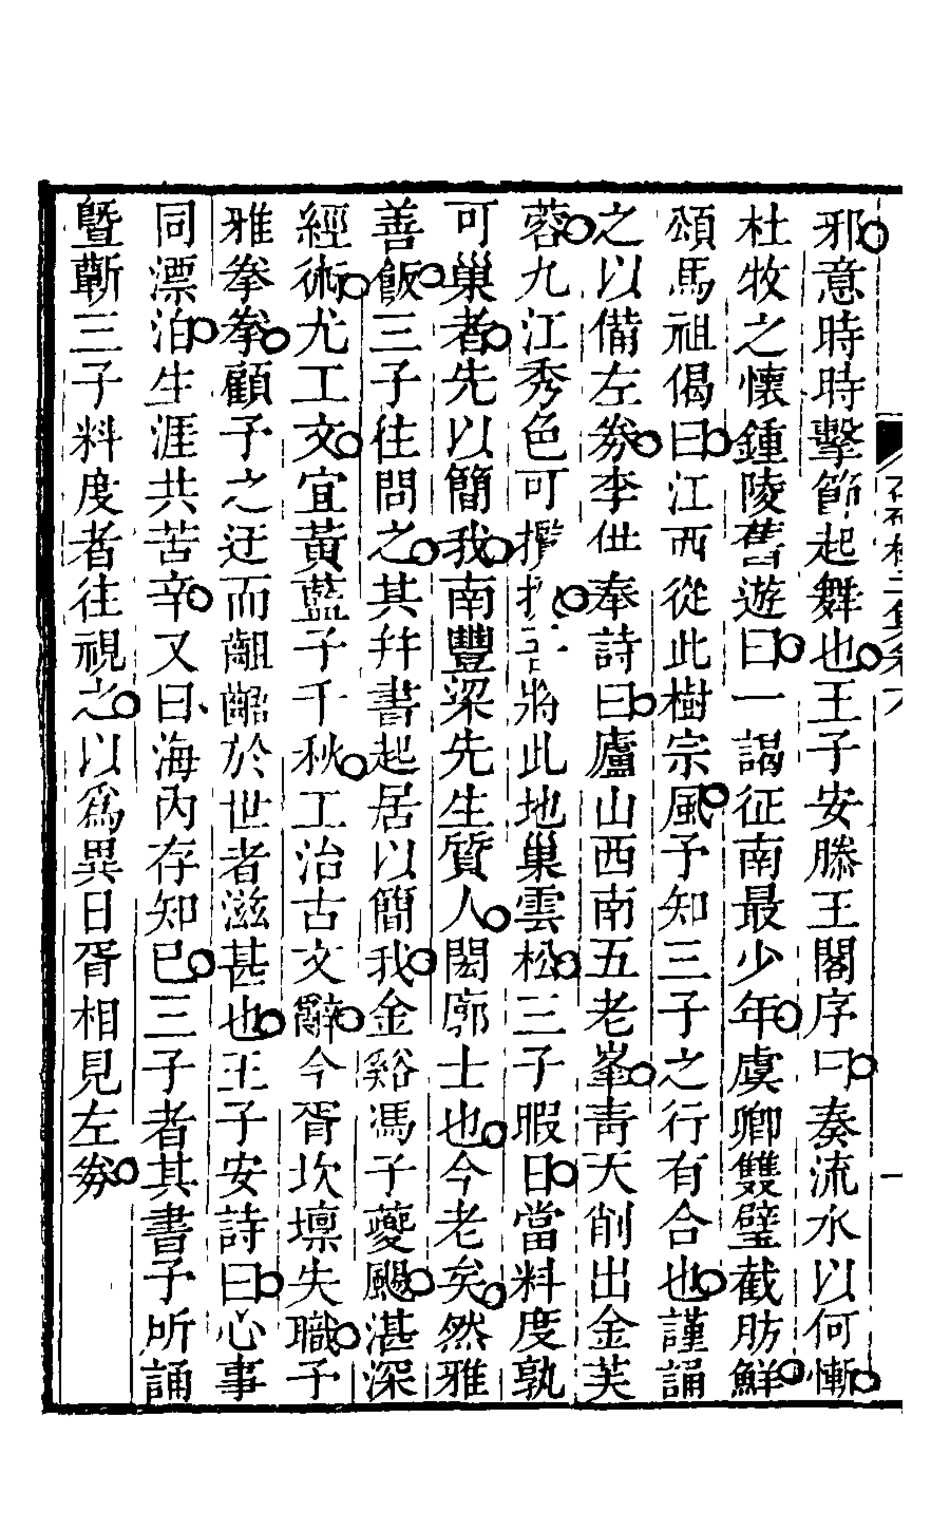 邪意時時擊節起舞也王子安滕王閣序曰奏流水以何慚
杜牧之懷鍾陵舊遊曰一謁征南最少年虞卿雙璧截肪鮮
頌馬祖偈曰江西從此樹宗風予知三子之行有合也謹誦
之以備左券李供奉詩曰廬山西南五老峯靑天削出金芙
蓉九江秀色可攬將此地巢雲松三子暇日當料度孰
可巢者先以簡我南豐梁先生質人閎廓士也今老矣然雅
善飯三子往問之其幷書起居以簡我金谿馮子夔颺湛深
經術尤工文宜黃藍子千秋工治古文辭今胥坎壈失職予
雅拳拳顧予之迂而齟齬於世者滋甚也王子安詩曰心事
同漂泊生涯共苦辛又曰海內存知己三子者其書予所誦
曁蘄三子料度者往視之以爲異日胥相見左券